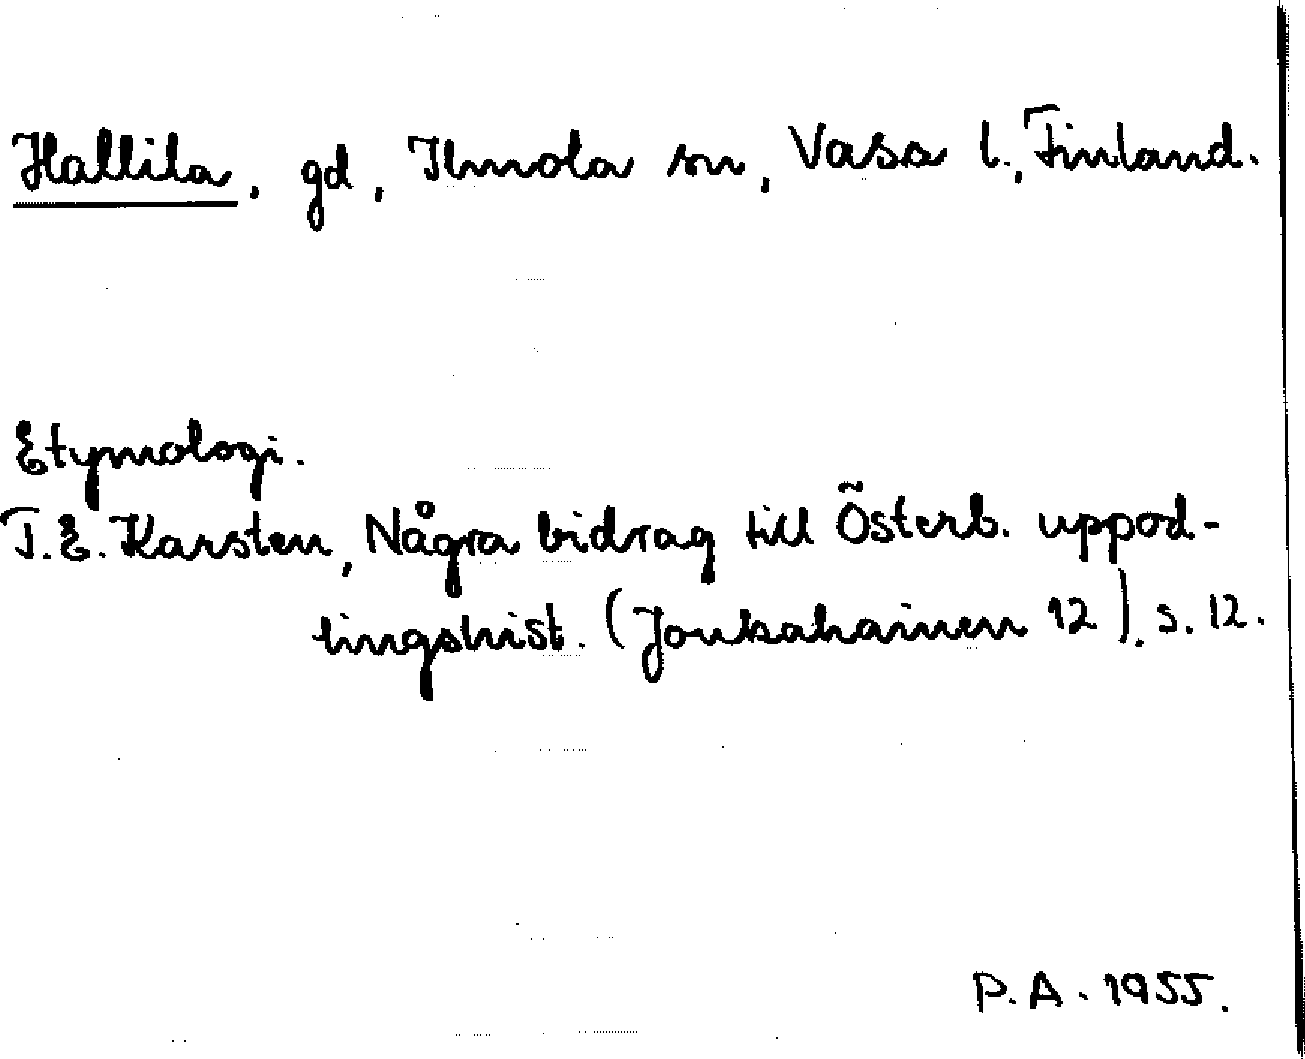 Hallila, gd, Ilmola sn, Vasa l., Finland.
Etymologi.
T.E. Karsten, Några bidrag till Österb. uppod-
lingshist. (Joukahainen 12). s. 12.
P.A. 1955.